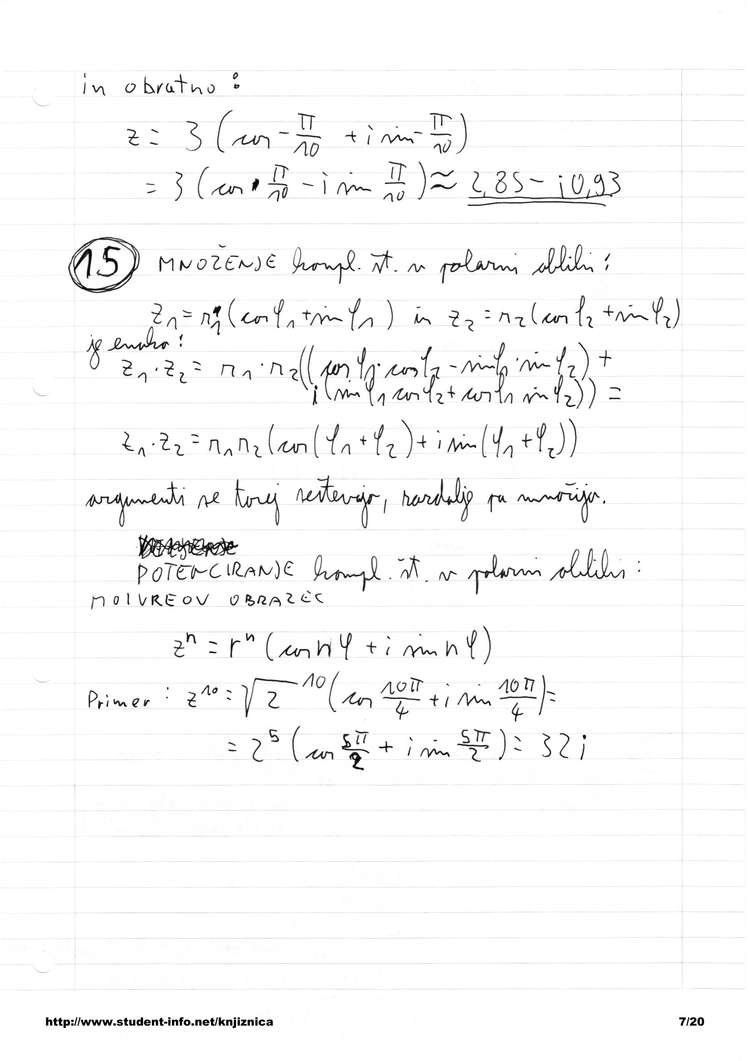 in obratno :
z = 3 (cos -π/10 + i sin -π/10)
= 3 (cos π/10 - i sin π/10) ≈ 2,85 - i 0,93
15 MNOŽENJE kompl. št. v polarni obliki :
z₁ = r₁ (cos φ₁ + sin φ₁) in z₂ = r₂ (cos φ₂ + sin φ₂)
je enako :
z₁ · z₂ = r₁ · r₂ ((cos φ₁ · cos φ₂ - sin φ₁ · sin φ₂) +
i (sin φ₁ cos φ₂ + cos φ₁ sin φ₂)) =
z₁ · z₂ = r₁ r₂ (cos (φ₁ + φ₂) + i sin (φ₁ + φ₂))
argumenti se torej seštevajo, razdalje pa množijo.
POTENCIRANJE kompl. št. v polarni obliki :
MOIVREOV OBRAZEC
zⁿ = rⁿ (cos n φ + i sin n φ)
Primer : z¹⁰ = √2 ¹⁰ (cos 10π/4 + i sin 10π/4) =
= 2⁵ (cos 5π/2 + i sin 5π/2) = 32 i
http://www.student-info.net/knjiznica 7/20